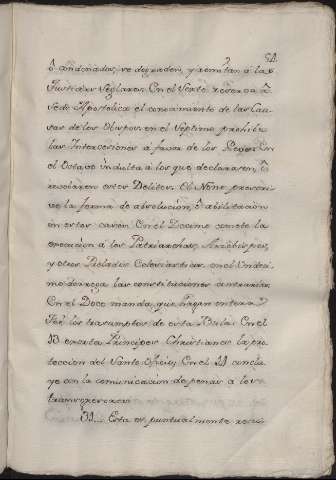 ò ordenados, se degraden, y remitan à las
Justicias Seglares. En el Sexto reserva à
Sede Apostolica el conocimiento de las Cau-
sas de los Obispos. en el Septimo prohibe
las Intercesiones à favor de los Reos. En
el Octavo indulta à los que declararen, ò
revelaren estos Delitos. El Nono prescri-
ve la forma de absolucion, ò abilitacion
en estos casos. En el Decimo comete la
execucion à los Patriarchas, Arzobispos,
y otros Prelados Eclesiasticos. en el Undeci-
mo deroga las constituciones contrarias.
En el Doce manda, que hagan entera
Feè los transumptos de esta Bula: En el
13 exorta Principes Christianos la pro-
teccion del Santo Oficio; En el 14 conclu-
ye con la comunicacion de penas à los
transgresores.
51.. Esta es puntualmente